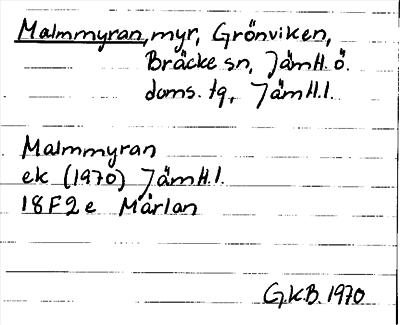 Malmmyran, myr, Grönviken,
Bräcke sn, Jämtl. ö.
doms. tg, Jämtl. l.
Malmmyran
ek (1970) Jämtl. l.
18F2e Märlan
G.K.B. 1970